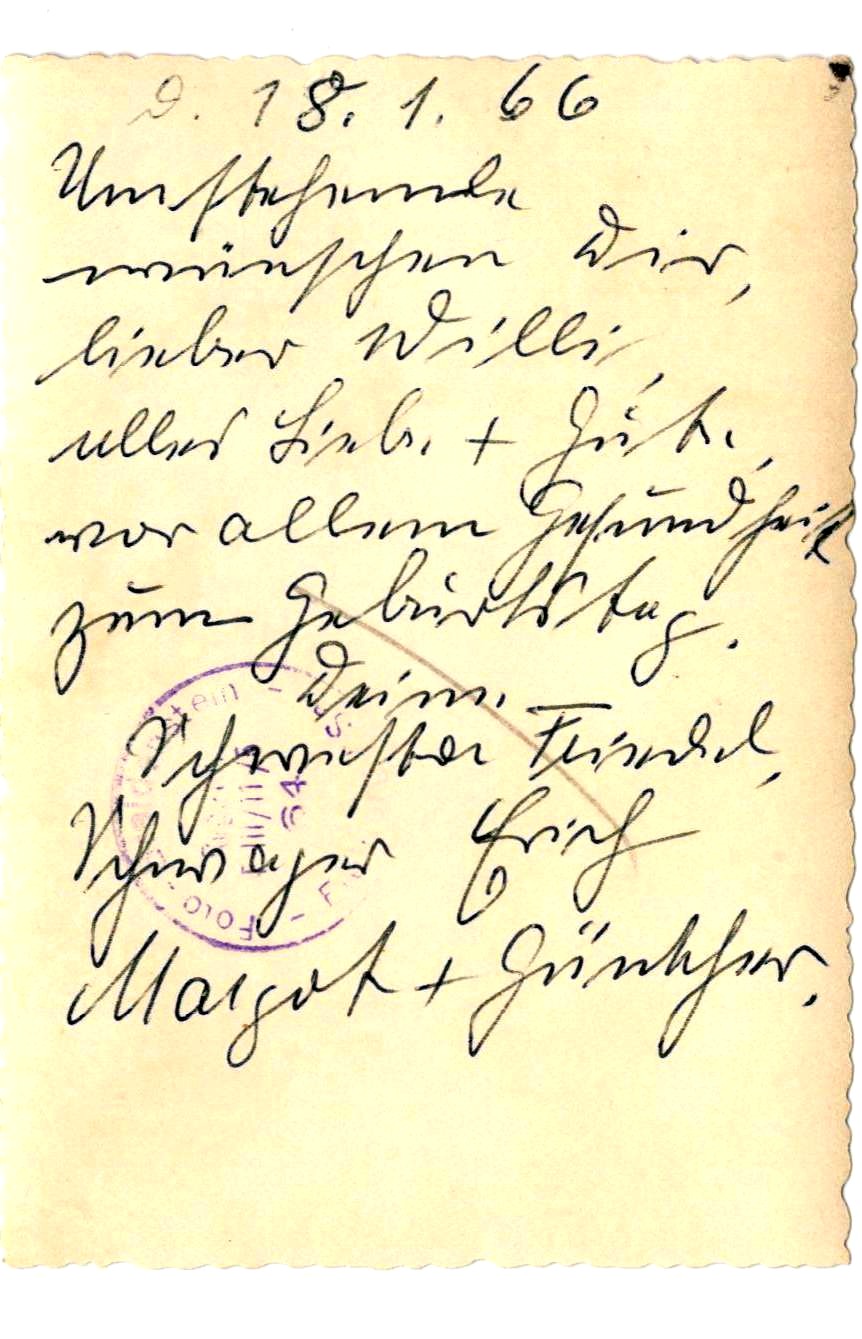 d. 18. 1. 66
Umstehende
wünschen Dir,
lieber Willi,
alles Liebe + Gute,
vor allem Gesundheit
zum Geburtstag.
Deine
Schwester Friedel,
Schwager Erich
Margot + Günther.